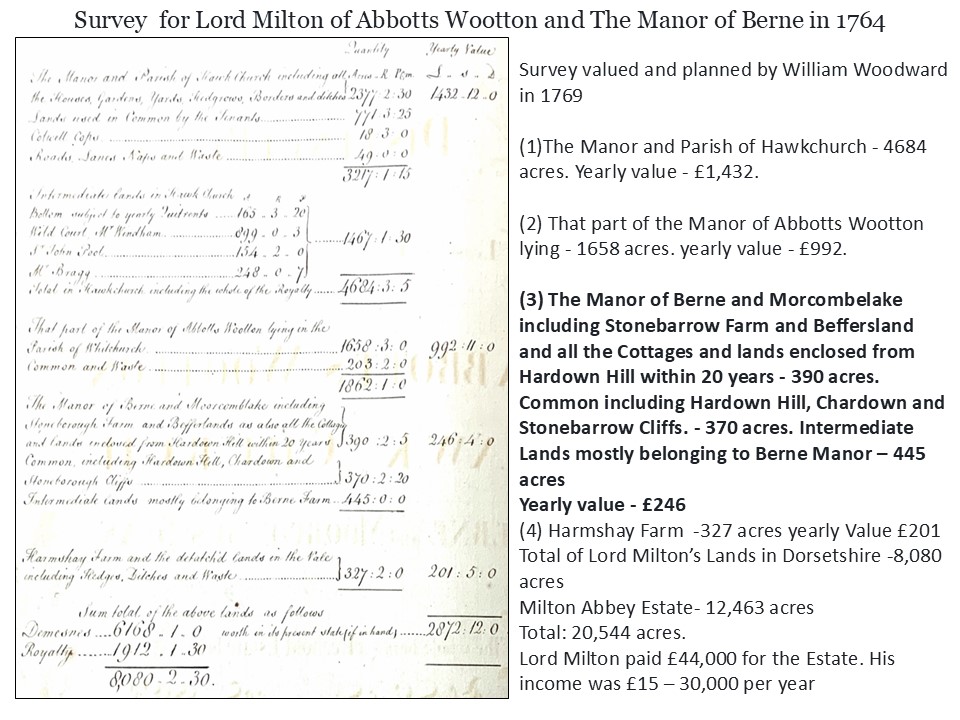 Survey for Lord Milton of Abbotts Wootton and The Manor of Berne in 1764
Quantity Yearly Value
The Manor and Parish of Hawk Church including all Acres - R Pcm £ - s - d
the Houses, Gardens, Yards, Hedgrows, Borders and ditches 2377 : 2 : 30 1432 - 12 - 0
Lands used in Common by the Tenants 771 : 3 : 25
Cotwell Cops 18 3 : 0
Roads, Lanes Naps and Waste 49 : 0 : 0
3217 : 1 : 15
Intermediate lands in Hawk Church A R P
Bottom subject to yearly Quitrents 165 - 3 - 20
Wild Court Mr Windham 899 - 0 - 3 1467 : 1 : 30
Sr John Pool 154 - 2 - 0
Mr Bragg 248 - 0 - 7
Total in Hawkchurch including the whole of the Royalty 4684 : 3 : 5
That part of the Manor of Abbotts Wootton lying in the
Parish of Whitchurch 1658 : 3 : 0 992 : 11 : 0
Common and Waste 203 : 2 : 0
1862 : 1 : 0
The Manor of Berne and Moorcomblake including
Stoneborough Farm and Befferlands as also all the Cottages
and lands inclosed from Hardown Hill within 20 Years 390 : 2 : 5 246 : 4 : 0
Common, including Hardown Hill, Chardown and
Stoneborough Cliffs 370 : 2 : 20
Intermediate Lands mostly belonging to Berne Farm 445 : 0 : 0
Harmshay Farm and the detatch'd lands in the Vale
including Hedges, Ditches and Waste 327 : 2 : 0 201 : 5 : 0
Sum total of the above lands as follows
Demesnes 6168 - 1 - 0 worth in its present state (if in hand) 2872 : 12 : 0
Royalty 1912 . 1 - 30
8,080 - 2 - 30.
Survey valued and planned by William Woodward
in 1769
(1)The Manor and Parish of Hawkchurch - 4684
acres. Yearly value - £1,432.
(2) That part of the Manor of Abbotts Wootton
lying - 1658 acres. yearly value - £992.
(3) The Manor of Berne and Morcombelake
including Stonebarrow Farm and Beffersland
and all the Cottages and lands enclosed from
Hardown Hill within 20 years - 390 acres.
Common including Hardown Hill, Chardown and
Stonebarrow Cliffs. - 370 acres. Intermediate
Lands mostly belonging to Berne Manor – 445
acres
Yearly value - £246
(4) Harmshay Farm -327 acres yearly Value £201
Total of Lord Milton’s Lands in Dorsetshire -8,080
acres
Milton Abbey Estate- 12,463 acres
Total: 20,544 acres.
Lord Milton paid £44,000 for the Estate. His
income was £15 – 30,000 per year